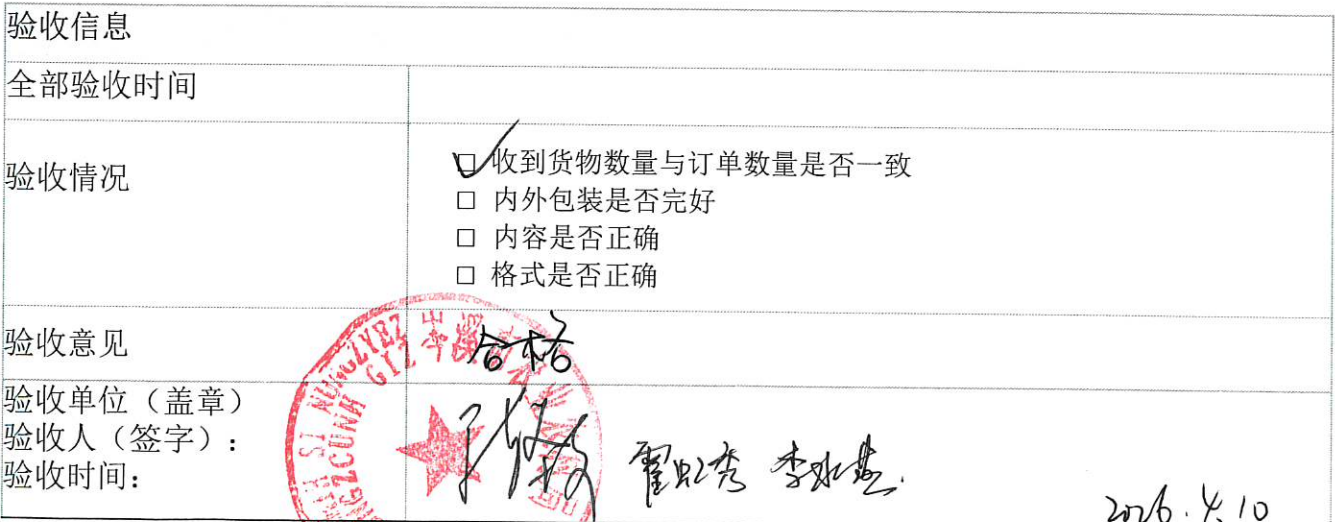 验收信息
全部验收时间
验收情况
□ 收到货物数量与订单数量是否一致
□ 内外包装是否完好
□ 内容是否正确
□ 格式是否正确
验收意见
合格
验收单位（盖章）
验收人（签字）：
验收时间：
2026.4.10